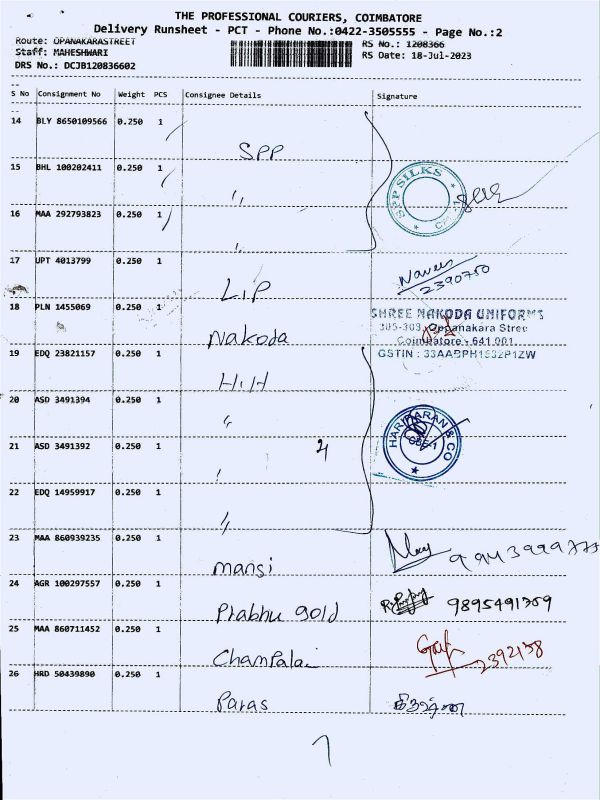 THE PROFESSIONAL COURIERS, COIMBATORE
Delivery Runsheet - PCT - Phone No.:0422-3505555 - Page No.:2
Route: OPANAKARASTREET RS No.: 1208366
Staff: MAHESHWARI RS Date: 18-Jul-2023
DRS No.: DCJB120836602
S No Consignment No Weight PCS Consignee Details Signature
14 BLY 8650109566 0.250 1 SPP
15 BHL 100202411 0.250 1 ,, SPP SILKS
16 MAA 292793823 0.250 1 ,,
17 UPT 4013799 0.250 1 LIP Naveen 2390750
18 PLN 1455069 0.250 1 Nakoda SHREE NAKODA UNIFORMS
305-309, Oppanakara Stree
Coimbatore - 641 001.
GSTIN : 33AABPH1532P1ZW
19 EDQ 23821157 0.250 1 H.H
20 ASD 3491394 0.250 1 ,,
21 ASD 3491392 0.250 1 ,, 4 HARIHARAN & CO CBE-1
22 EDQ 14959917 0.250 1 ,,
23 MAA 860939235 0.250 1 mansi
24 AGR 100297557 0.250 1 Prabhu gold 9895491359
25 MAA 860711452 0.250 1 Champalal 2392138
26 HRD 50439890 0.250 1 Paras